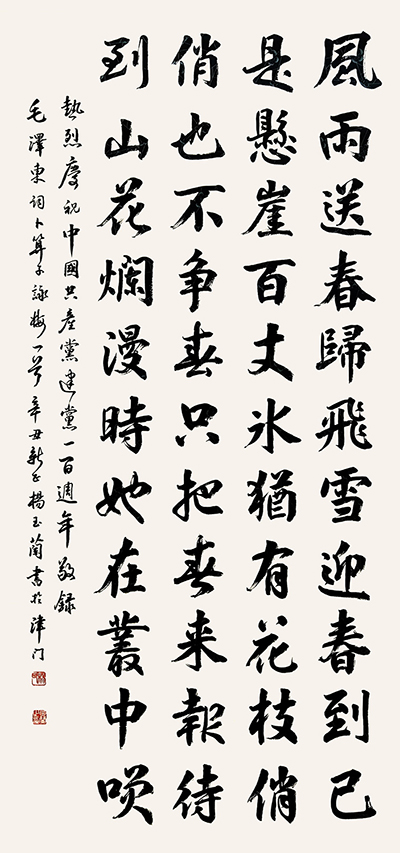 風雨送春歸飛雪迎春到已
是懸崖百丈氷猶有花枝俏
俏也不争春只把春来報待
到山花爛漫時她在叢中咲
熱烈慶祝中國共產黨建黨一百週年敬録
毛澤東詞卜算子詠梅一首辛丑新正楊玉蘭書於津门